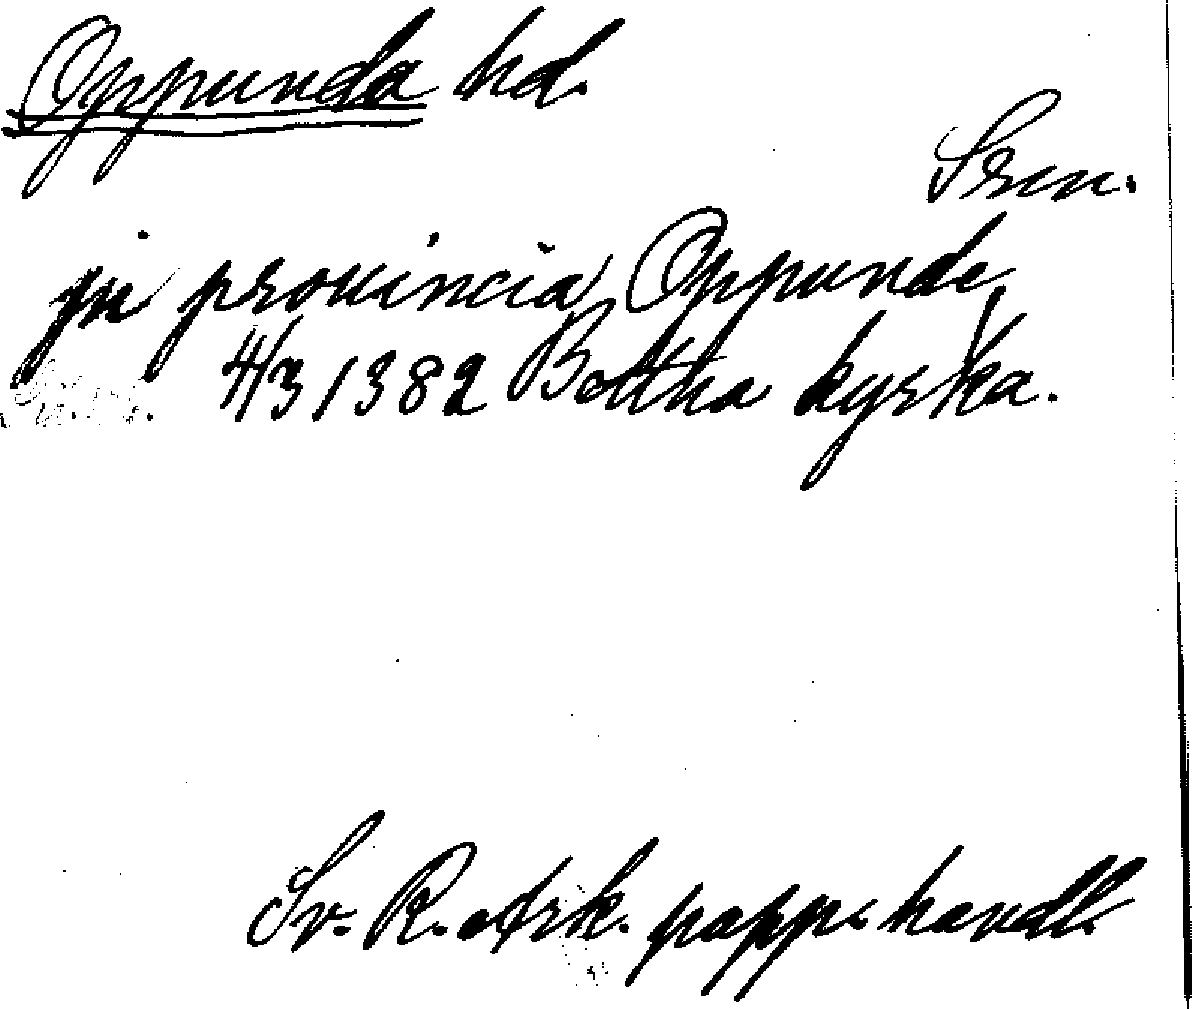 Oppunda hd.
Srm.
jn provincia Oppunde,
4/3 1382 Bottna kyrka.
Sv. R. Ark. papp. handl.